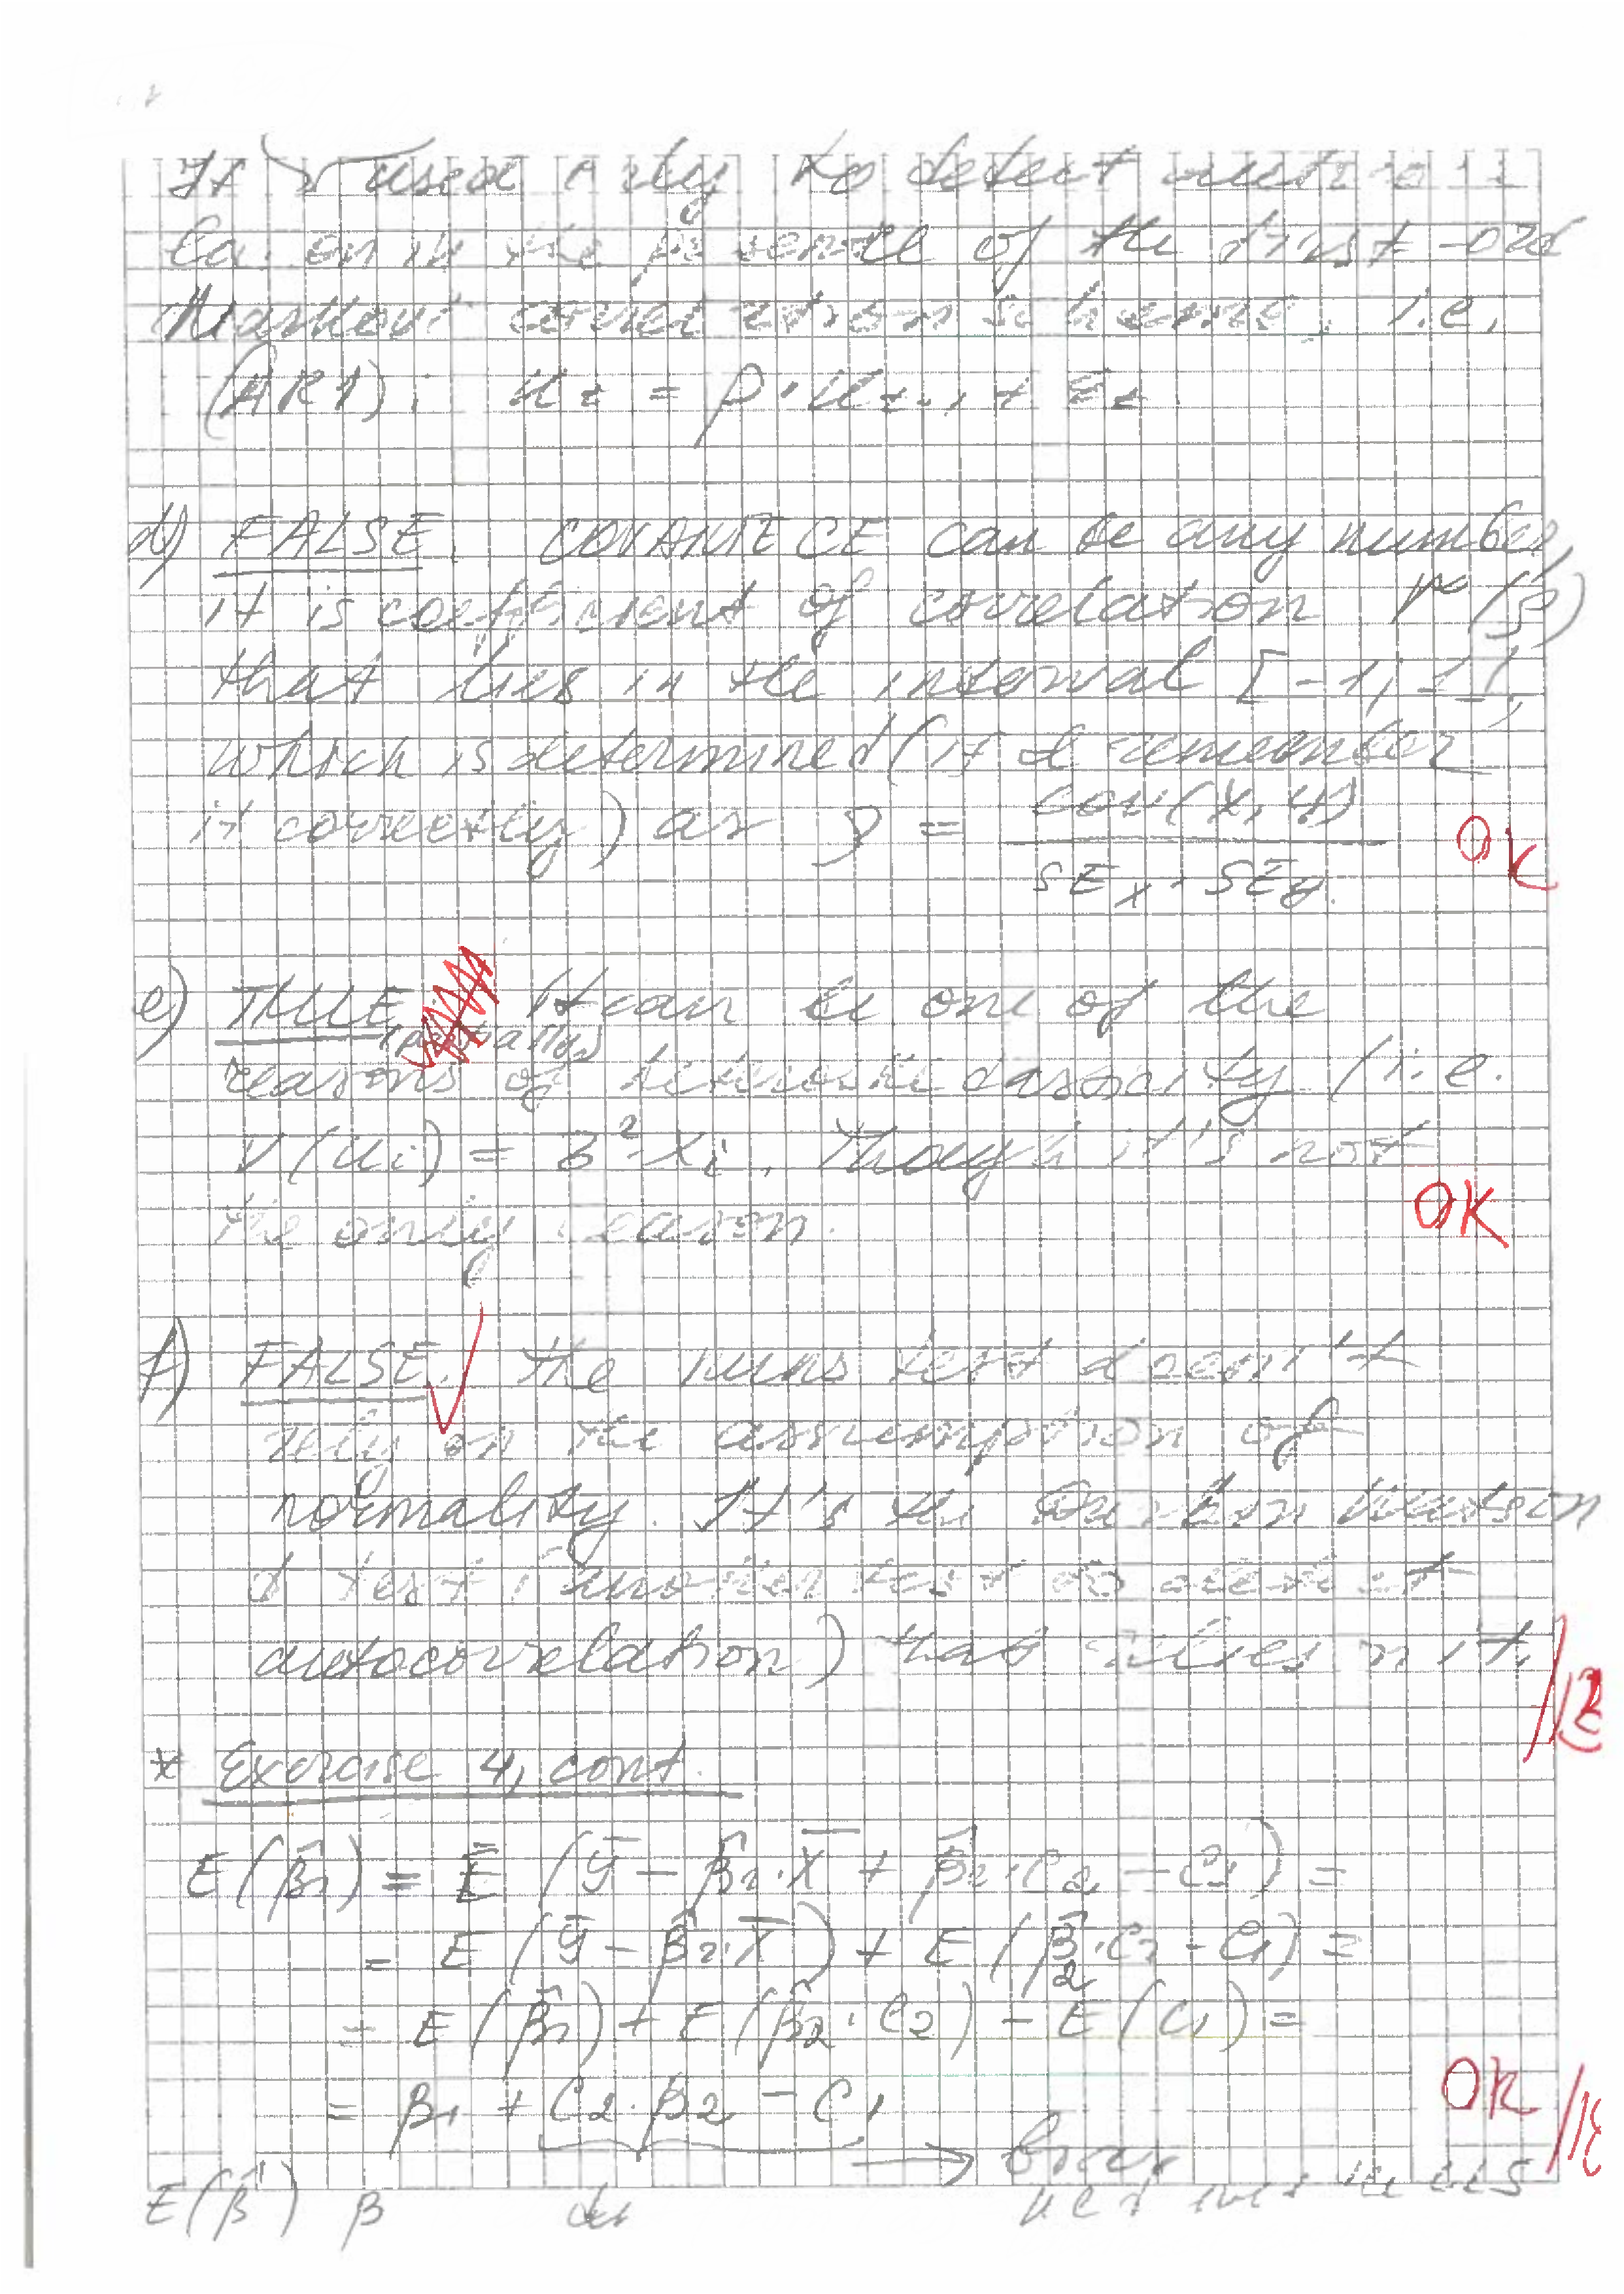 It is used only to detect
in the presence of the first-ord
Markov scheme, i.e.
(AR1): u_t = ρ·u_{t-1} + ε_t
d) FALSE. COVARIANCE can be any number,
it is coefficient of correlation r (ρ)
that lies in the interval [-1; 1],
which is determined (if I remember
it correctly) as ρ = cov(x, y) / SE_x · SE_y
OK
e) TRUE It can be one of the
(partially)
reasons of heteroscedasticity (i.e.
V(u_i) = б²·x_i. Though it's not
OK
the only reason.
f) FALSE. The runs test doesn't
rely on the assumption of
normality. It's the Durbin Watson
d test (another test to detect
autocorrelation) that relies on it.
* Exercise 4, cont.
E(β̂₁) = E (ȳ − β̂₂·X̄ + β̂₂·C₂ − C₁) =
= E (ȳ − β̂₂·X̄) + E (β̂₂·C₂ − C₁) =
= E (β̂₁) + E (β̂₂·C₂) − E (C₁) =
= β₁ + C₂·β₂ − C₁
OK
→ bias
E(β̂) β